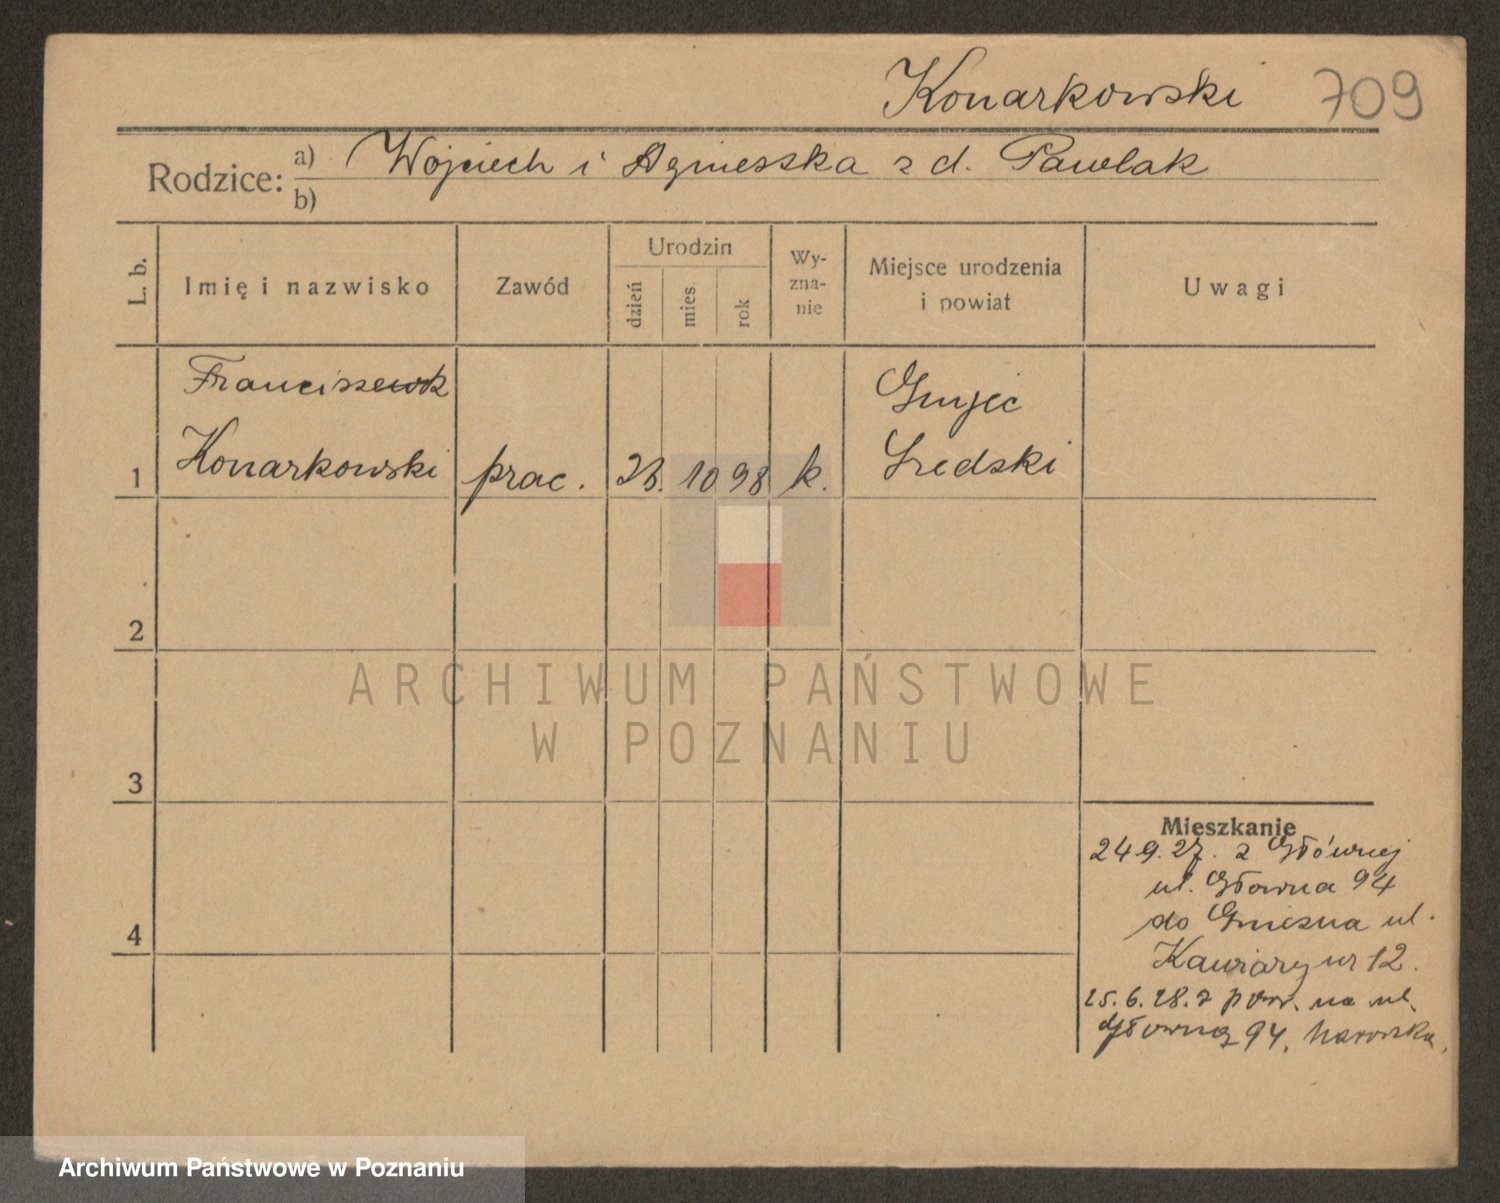 Konarkowski 709
Rodzice: a) Wojciech i Agnieszka z d. Pawlak
b)
L. b. Imię i nazwisko Zawód Urodzin dzień mies. rok Wy-zna-nie Miejsce urodzenia i powiat Uwagi
Franciszek Gnijec
1 Konarkowski prac. 23. 10 98 k. Sredski
2
3
4
Mieszkanie
24.9.27. z Głównej
ul. Głowna 94
do Gniezna ul.
Kawiary nr 12.
25.6.28. z pow. na ul.
Główną 94.
ARCHIWUM PAŃSTWOWE
W POZNANIU
Archiwum Państwowe w Poznaniu